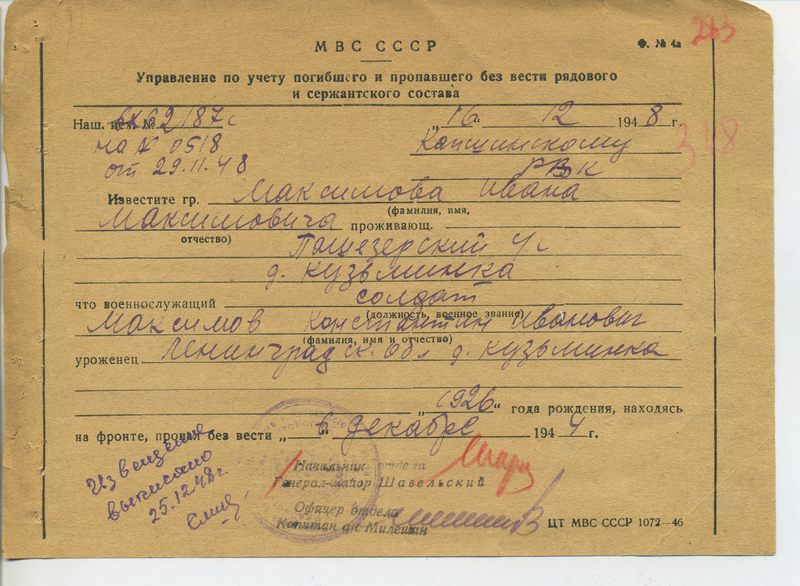 МВС СССР
Ф. № 4а
233
Управление по учету погибшего и пропавшего без вести рядового
и сержантского состава
Наш. исх. № 62/87с
„16“ 12 1948 г.
на № 0518
Капшинскому
348
от 29.11.48
РВК
Известите гр. Максимова Ивана
(фамилия, имя,
Максимовича проживающ.
отчество)
Пашезерский с/с
д. Кузьминка
что военнослужащий солдат
(должность, военное звание)
Максимов Константин Иванович
(фамилия, имя и отчество)
уроженец Ленинградск. обл д. Кузьминка
„1926“ года рождения, находясь
на фронте, пропал без вести „в“ декабре 1944 г.
Извещение
выписано
25.12.48г.
Начальник отдела
Генерал-майор Шавельский
Офицер отдела
Капитан а/с Милешин
ЦТ МВС СССР 1072—46